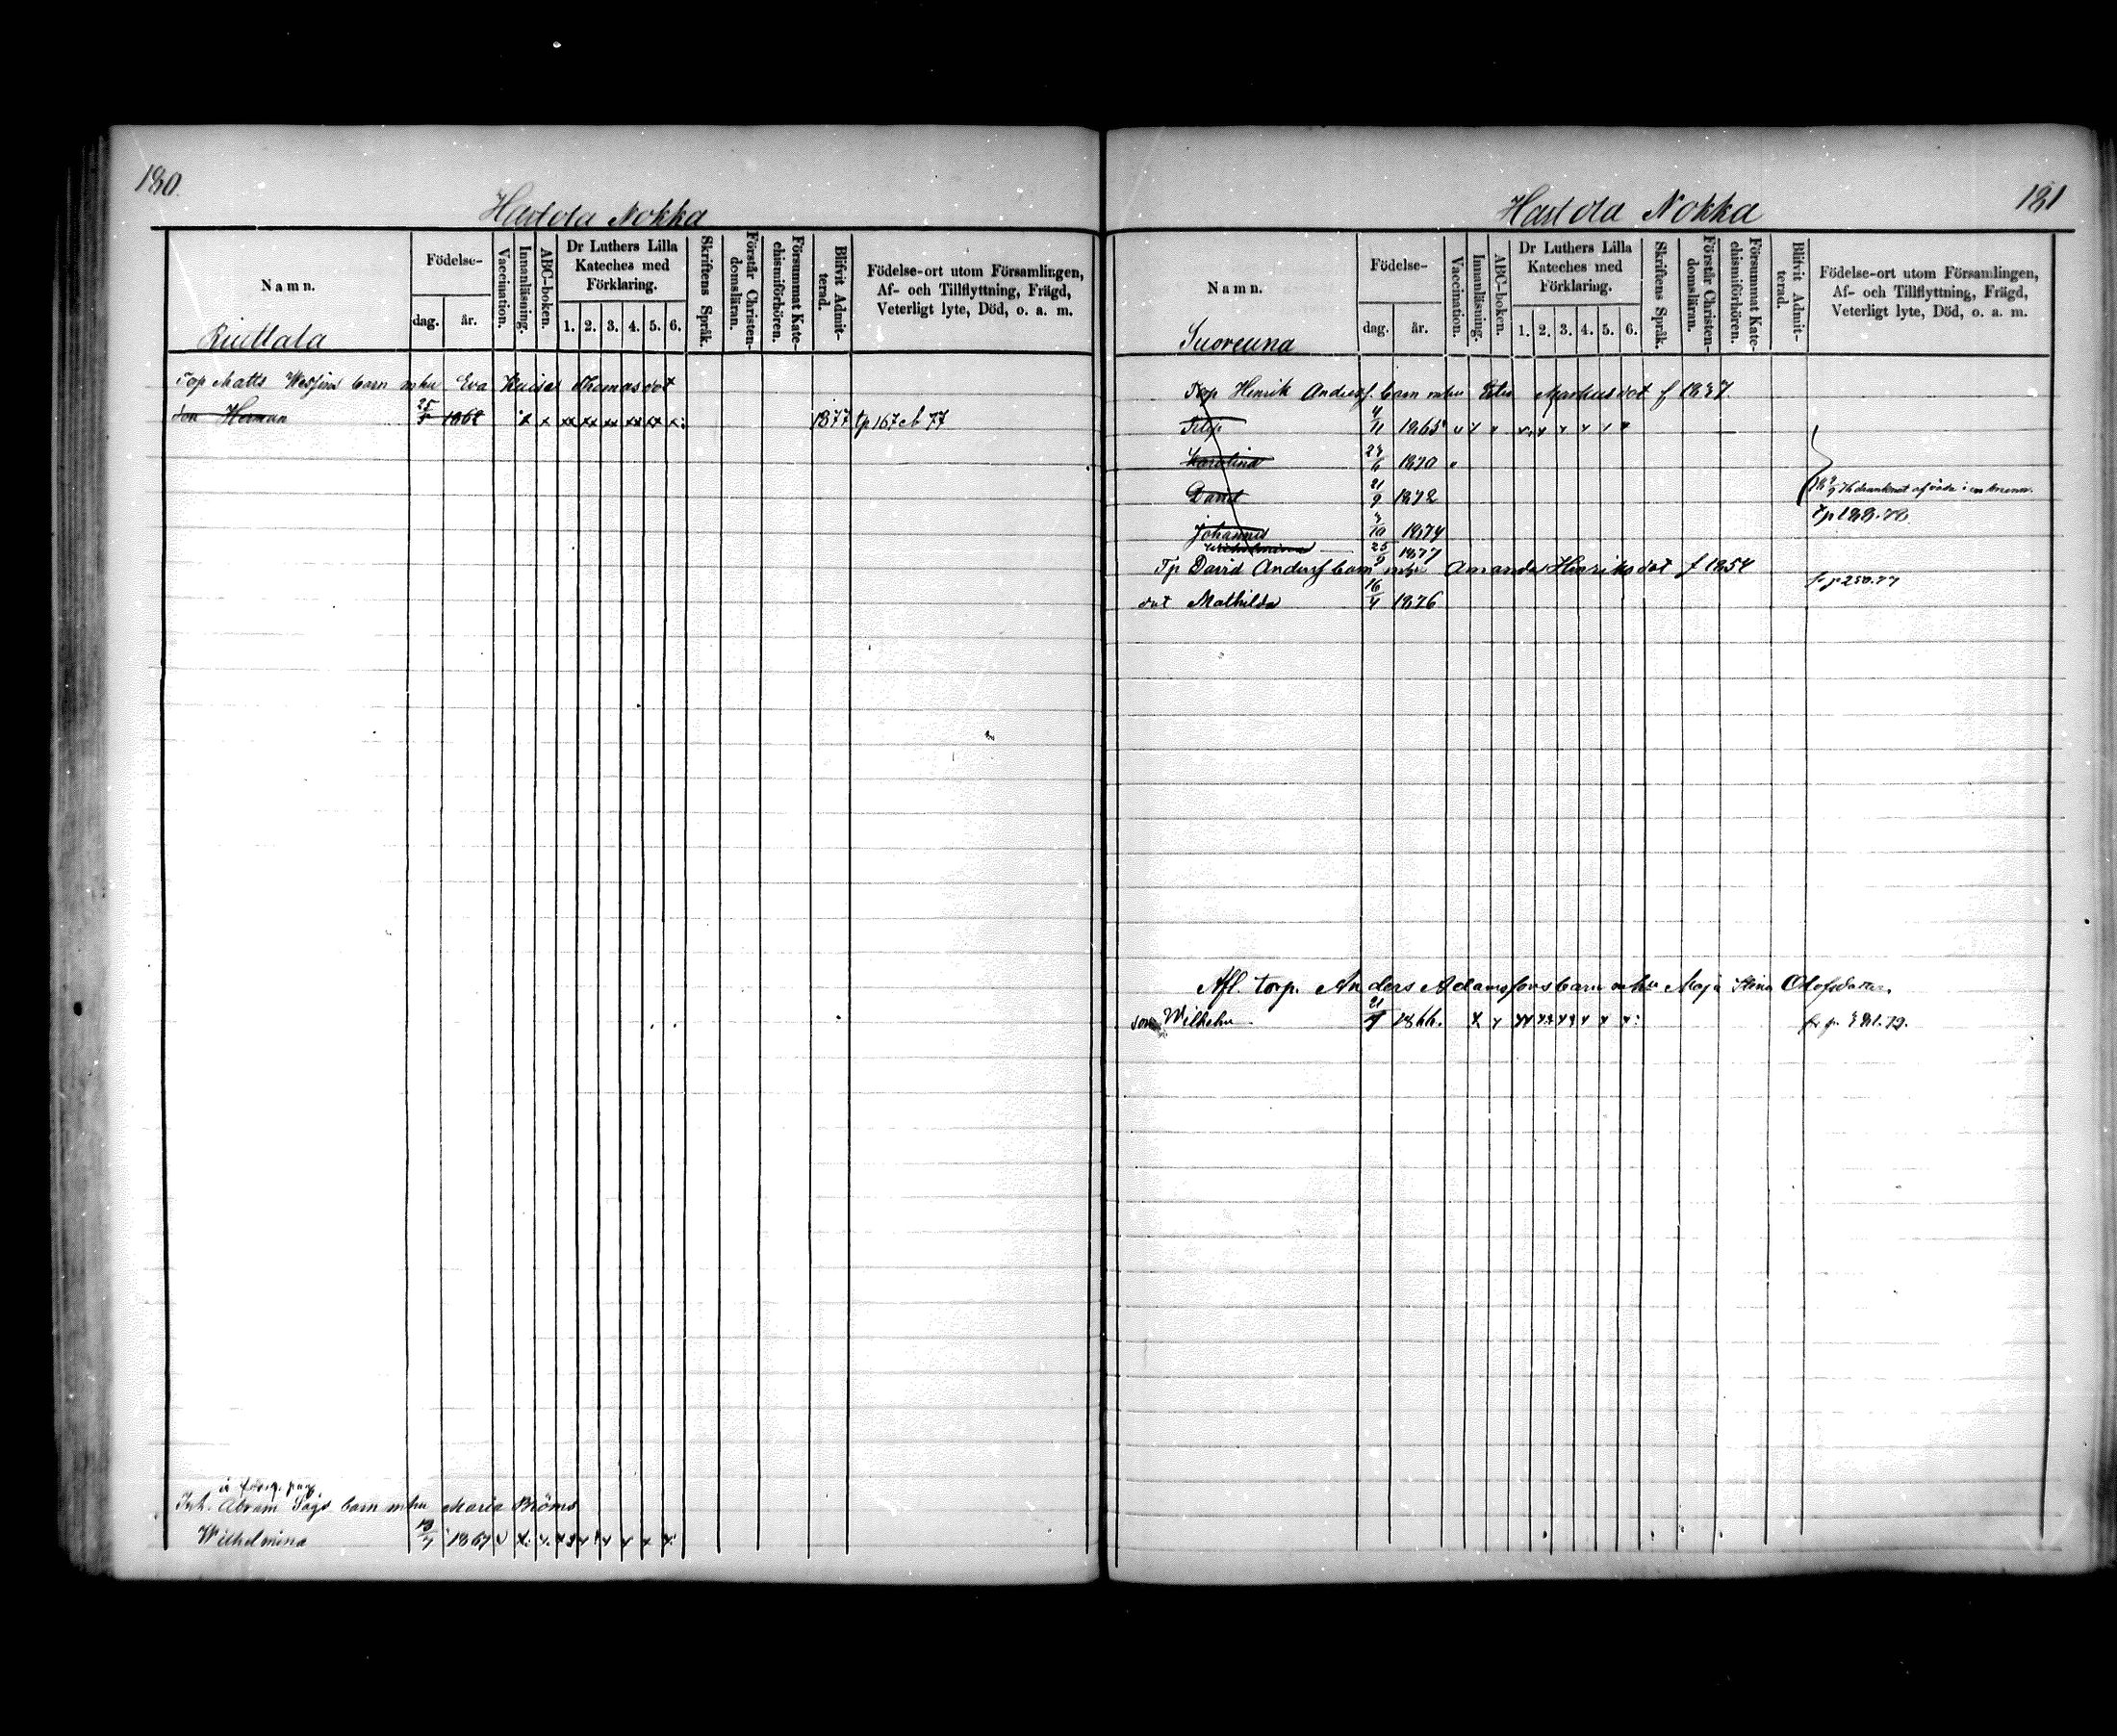 180.
Hartola Nokka
Namn.
Födelse-
dag. år.
Vaccination.
Innanläsning.
ABC-boken.
Dr Luthers Lilla Kateches med Förklaring.
1. 2. 3. 4. 5. 6.
Skriftens Språk.
Förstår Christen-domsläran.
Försummat Kate-chismiförhören.
Blifvit Admit-terad.
Födelse-ort utom Församlingen,
Af- och Tillflyttning, Frägd,
Veterligt lyte, Död, o. a. m.
Riuttala
Top Matts barn mhu Eva Thomasdot
son Herman 25/5 1862 x x xx xx xx xx xx x: 1877 tp 167 77
å förg. pag.
Inh. Abram barn mhu Maria Bröms
Wilhelmina 1867
181
Hartola Nokka
Namn.
Födelse-
dag. år.
Vaccination.
Innanläsning.
ABC-boken.
Dr Luthers Lilla Kateches med Förklaring.
1. 2. 3. 4. 5. 6.
Skriftens Språk.
Förstår Christen-domsläran.
Försummat Kate-chismiförhören.
Blifvit Admit-terad.
Födelse-ort utom Församlingen,
Af- och Tillflyttning, Frägd,
Veterligt lyte, Död, o. a. m.
Suoreuna
Top Henrik Anderss. barn mhu Markusdot f 1837.
Filip 4/11 1865
Karolina 1870
David 21/9 1872 drunknat af våda i en brunn.
Johannes 1874 tp 188.78.
Wilhelmina 25/9 1877
Tp David Anderss barn mhu Amanda Henriksdot f 1854
dot Mathilda 16/4 1876 fr p 250.77
Afl. torp. Anders Adamssons barn mhu Maja Stina Olofsdotter.
son Wilhelm 21 1866. fr p. 79.